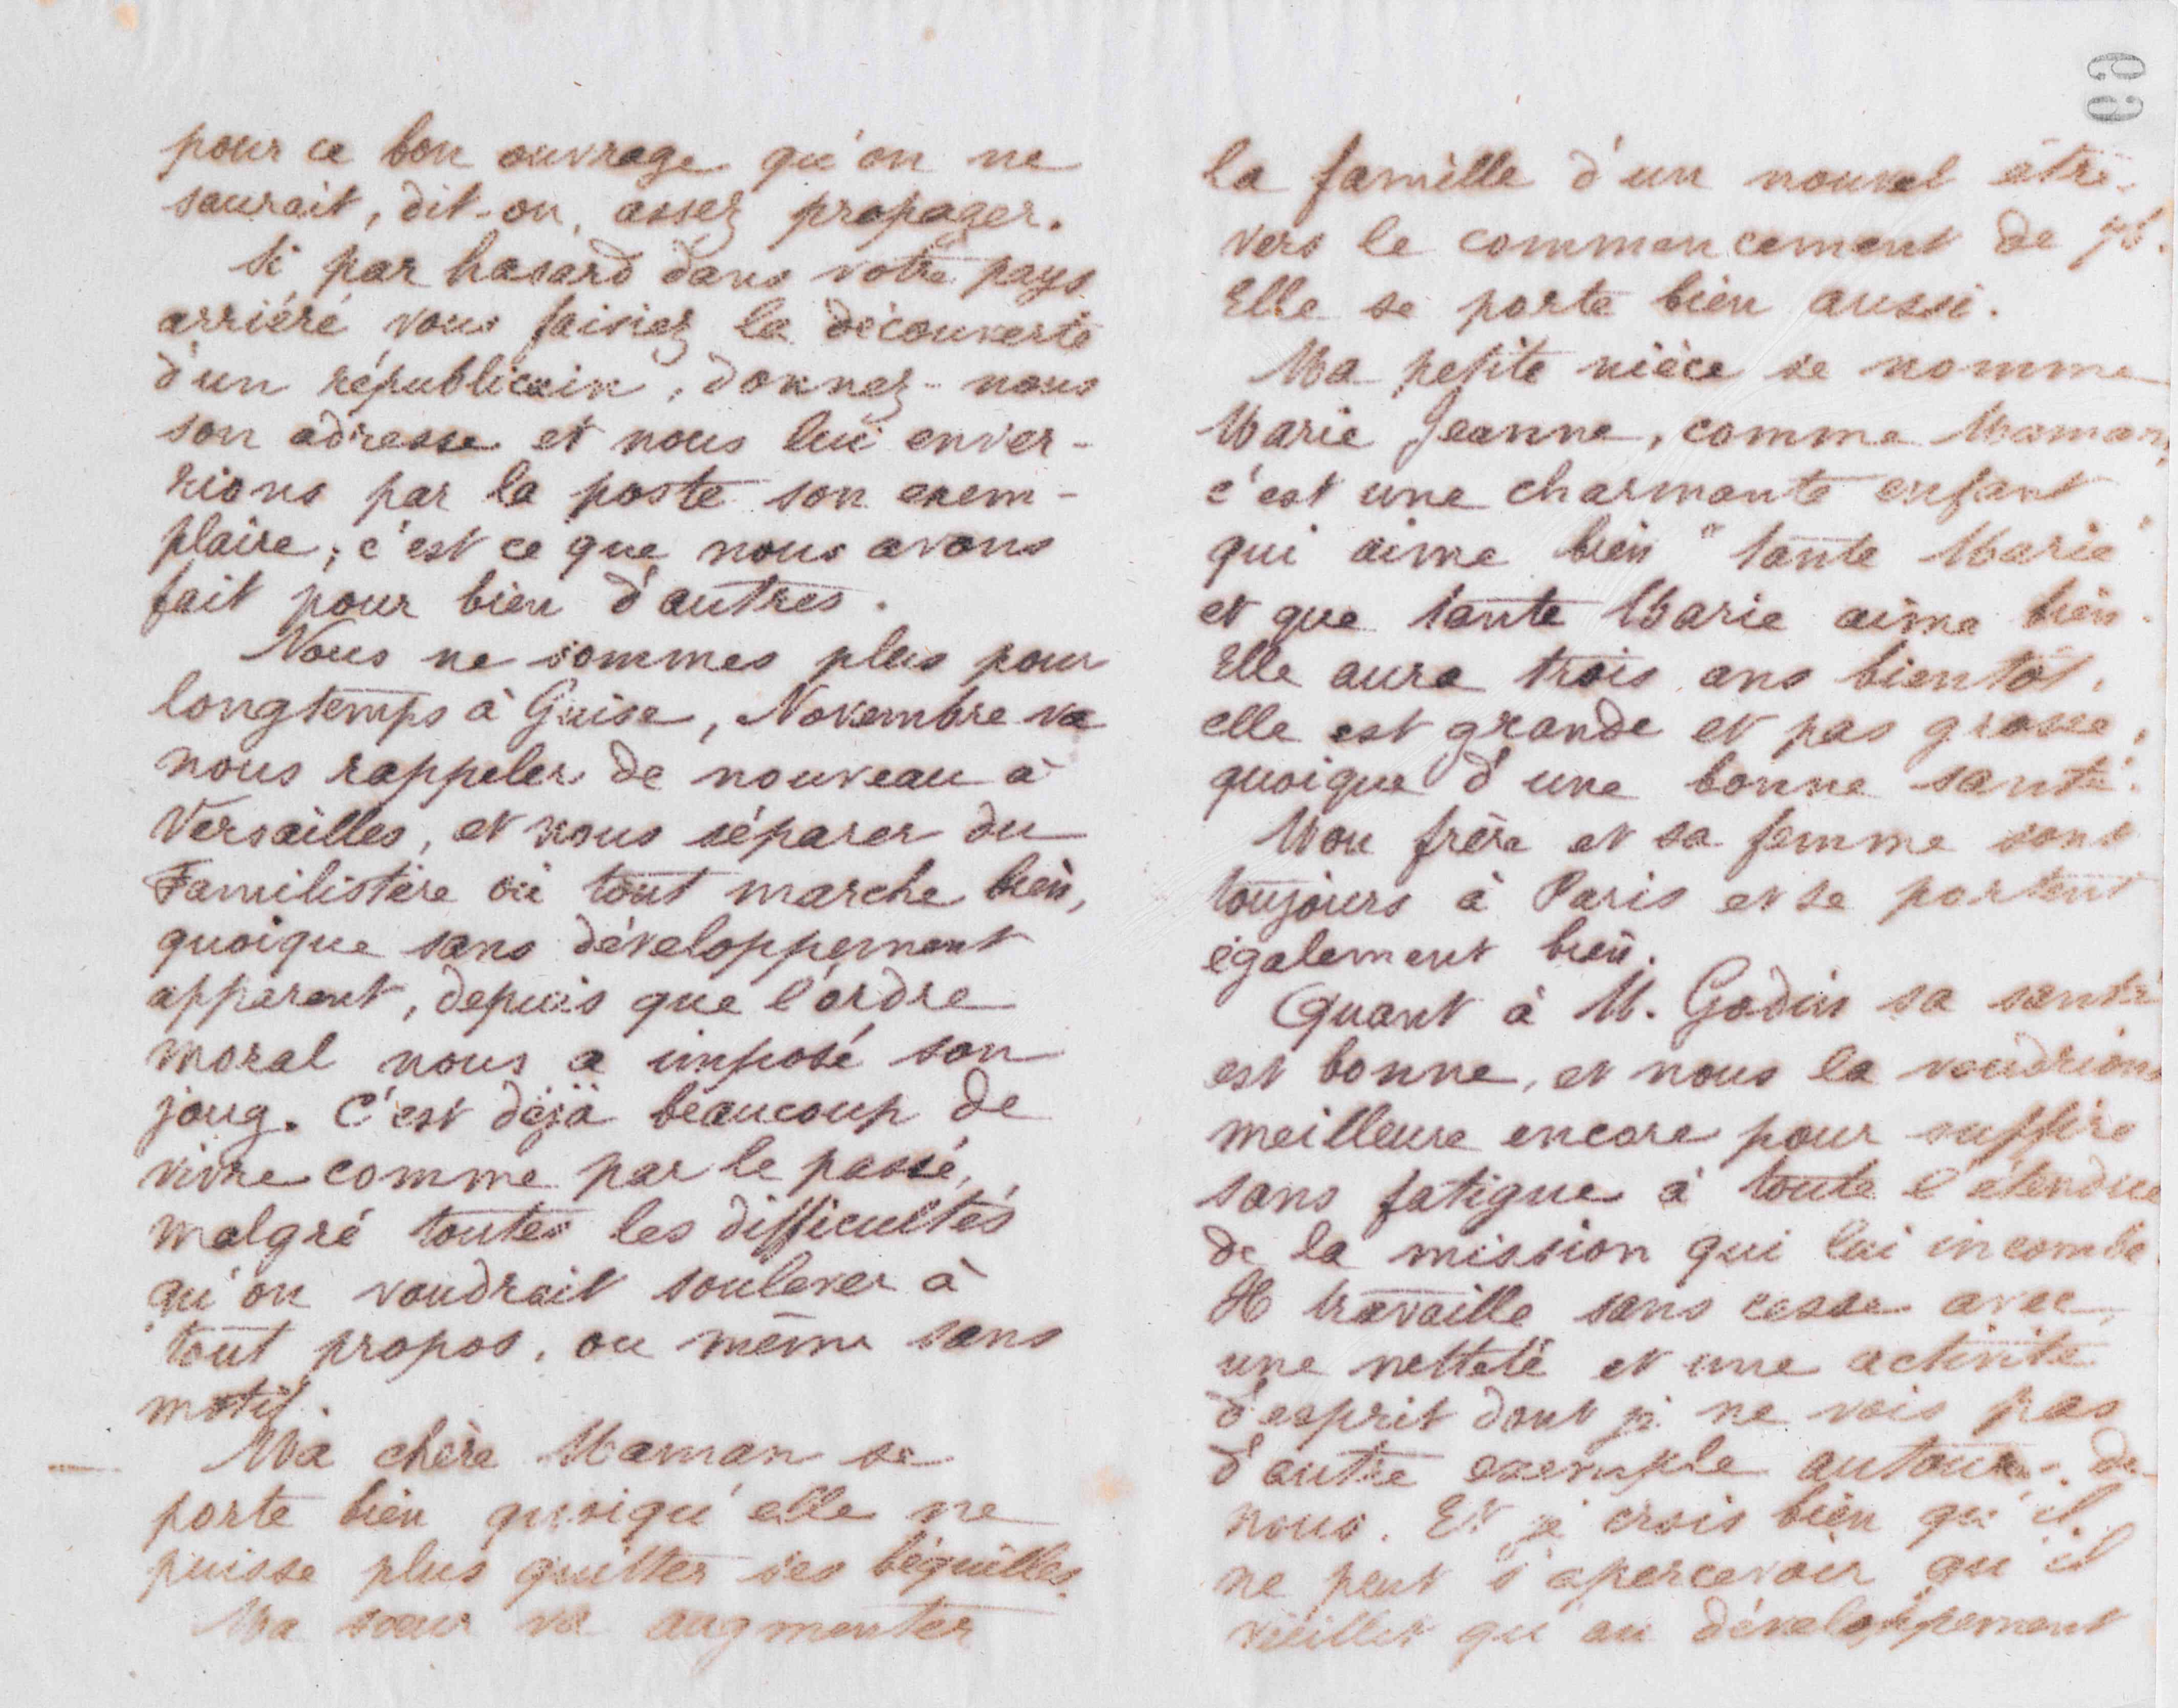 pour ce bon ouvrage qu'on ne
saurait, dit-on, assez propager.
Si par hasard dans votre pays
arriéré vous faisiez la découverte
d'un républicain, donnez-nous
son adresse et nous lui enver-
rions par la poste son exem-
plaire; c'est ce que nous avons
fait pour bien d'autres.
Nous ne sommes plus pour
longtemps à Guise, Novembre va
nous rappeler de nouveau à
Versailles, et nous séparer du
Familistère où tout marche bien,
quoique sans développement
apparent, depuis que l'ordre
moral nous a imposé son
joug. C'est déjà beaucoup de
vivre comme par le passé,
malgré toutes les difficultés
qu'on voudrait soulever à
tout propos, ou même sans
motif.
Ma chère Maman se
porte bien quoiqu'elle ne
puisse plus quitter ses béquilles.
Ma sœur va augmenter
69
la famille d'un nouvel être
vers le commencement de 76.
Elle se porte bien aussi.
Ma petite nièce se nomme
Marie Jeanne, comme Maman,
c'est une charmante enfant
qui aime bien "tante Marie"
et que tante Marie aime bien.
Elle aura trois ans bientôt,
elle est grande et pas grosse,
quoique d'une bonne santé.
Mon frère et sa femme sont
toujours à Paris et se portent
également bien.
Quant à M. Godin sa santé
est bonne, et nous la voudrions
meilleure encore pour suffire
sans fatigue à toute l'étendue
de la mission qui lui incombe.
Il travaille sans cesse avec
une netteté et une activité
d'esprit dont je ne vois pas
d'autre exemple autour de
nous. Et je crois bien qu'il
ne peut s'apercevoir qu'il
vieillit qu'au développement